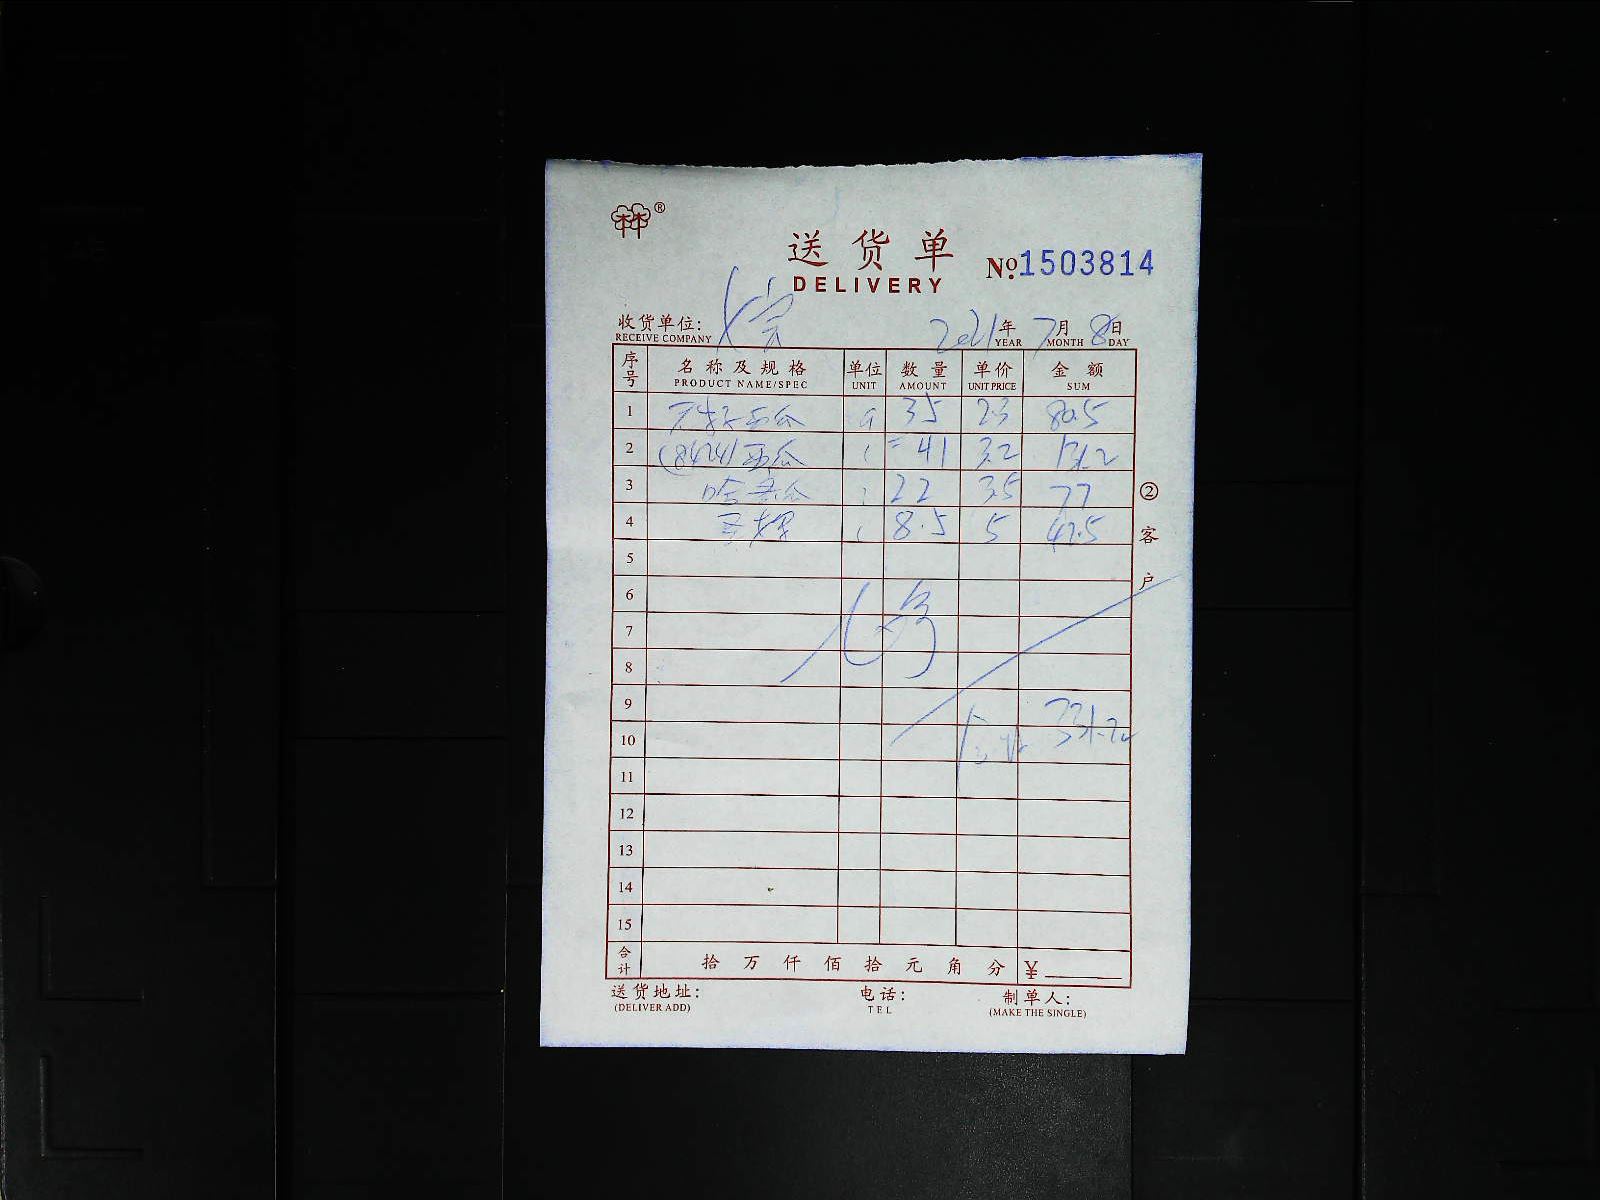 ®
送货单
DELIVERY
№1503814
收货单位:
RECEIVE COMPANY
2021年 7月 8日
YEAR MONTH DAY
序号 名称及规格 单位 数量 单价 金额
PRODUCT NAME/SPEC UNIT AMOUNT UNIT PRICE SUM
1 无籽西瓜 35 2.3 80.5
2 (8424)西瓜 41 3.2 131.2
3 哈密瓜 22 3.5 77
4 8.5 5 42.5
5
6
7
8
9
10 合计 331.2
11
12
13
14
15
合计 拾 万 仟 佰 拾 元 角 分 ¥
② 客户
送货地址: 电话: 制单人:
(DELIVER ADD) TEL (MAKE THE SINGLE)